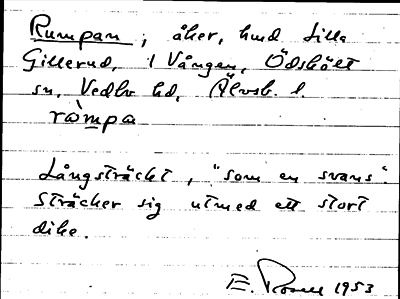 Rumpan, åker, hmd Lilla
Gillerud, i Vången, Ödskölt
sn, Vedbo hd, Älvsb. l.
ròmpa
Långsträckt, "som en svans".
Sträcker sig utmed ett stort
dike.
E. 1953